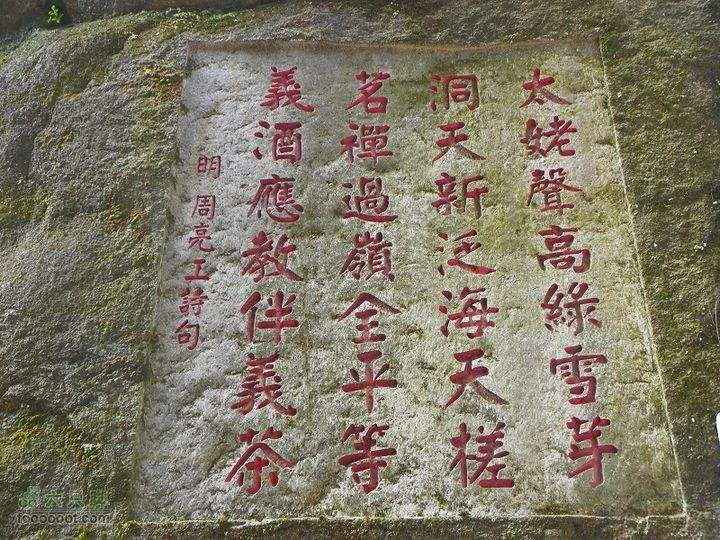 太姥聲高綠雪芽
洞天新泛海天槎
茗禪過嶺全平等
義酒應教伴義茶
明 周亮工詩句